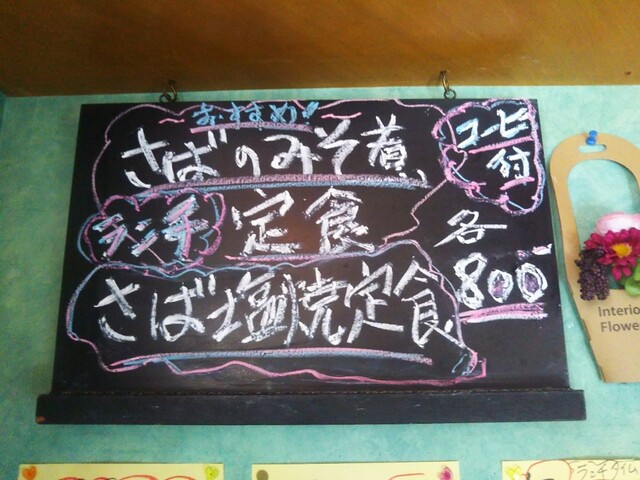 おすすめ
さばのみそ煮
コーヒー
付
ランチ
定食
各
800
さば塩焼定食
Interio
Flowe
ランチタイム